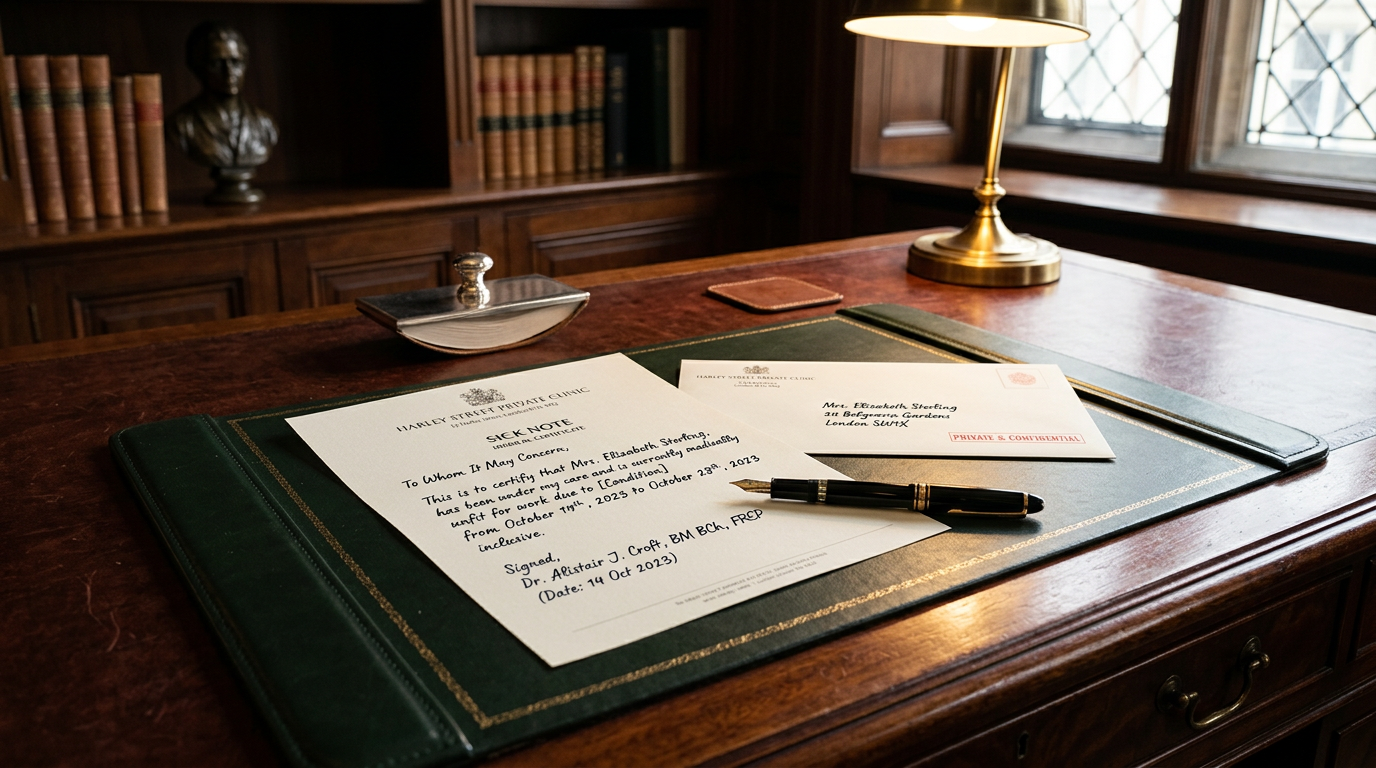 HARLEY STREET PRIVATE CLINIC
SICK NOTE
To Whom It May Concern,
This is to certify that Mrs. Elizabeth Sterling,
has been under my care and is currently madically
unfit for work due to [Condition]
from October 14th, 2023 to October 28th, 2023
inclusive.
Signed,
Dr. Alistair J. Croft, BM BCh, FRCP
(Date: 14 Oct 2023)
HARLEY STREET PRIVATE CLINIC
Mrs. Elizabeth Sterling
Gardens
London SW1X
PRIVATE & CONFIDENTIAL